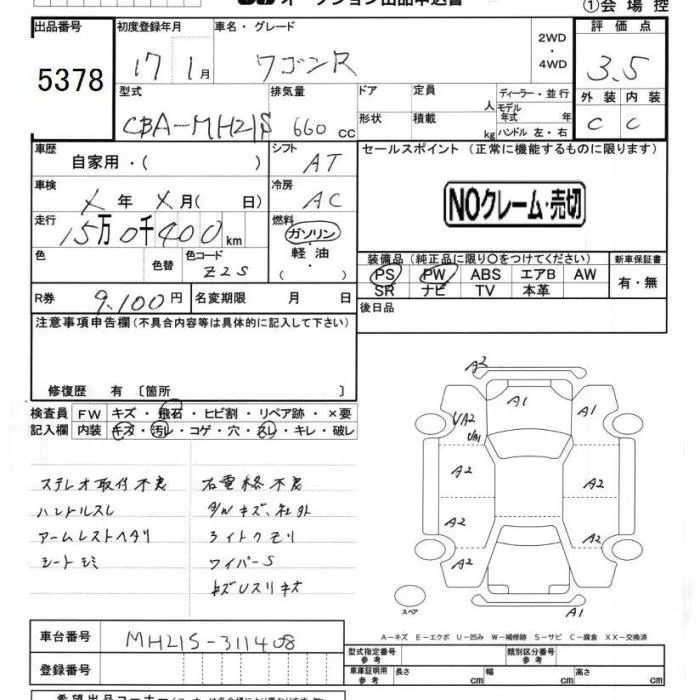 オークション出品申込書 ①会場控
出品番号 初度登録年月 車名・グレード 2WD・4WD 評価点
5378 17 1月 ワゴンR 3.5
型式 排気量 ドア 定員 人 ディーラー・並行 外装 内装
CBA-MH21S 660cc 形状 積載 kg モデル年式 年 ハンドル 左・右 C C
車歴 自家用・( ) シフト AT セールスポイント(正常に機能するものに限ります)
車検 X年 X月( 日) 冷房 AC NOクレーム・売切
走行 15万0千400km 燃料 ガソリン・軽油・( )
色 色替 色コード Z2S 装備品(純正品に限り○をつけてください) 新車保証書
PS PW ABS エアB AW 有・無
SR ナビ TV 本革
R券 9,100円 名変期限 月 日 後日品
注意事項申告欄(不具合内容等は具体的に記入して下さい)
修復歴 有〔箇所 〕
検査員 FW キズ・飛石・ヒビ割・リペア跡・×要
記入欄 内装 キズ・汚レ・コゲ・穴・スレ・キレ・破レ
ステレオ取付不良 右電格不良
ハンドルスレ ダルキズ、社外
アームレストヘタリ ライトクモリ
シートシミ ワイパーS
キズUスリキズ
A2
A1 A1
UA2
UA1
A2 A2
A2 A2
A2
スペア A1
A-キズ E-エクボ U-凹み W-補修跡 S-サビ C-腐食 XX-交換済
車台番号 MH21S-311408
登録番号
型式指定番号 参考 類別区分番号 参考
車庫証明用 参考 長さ cm 幅 cm 高さ cm
希望出品コーナー